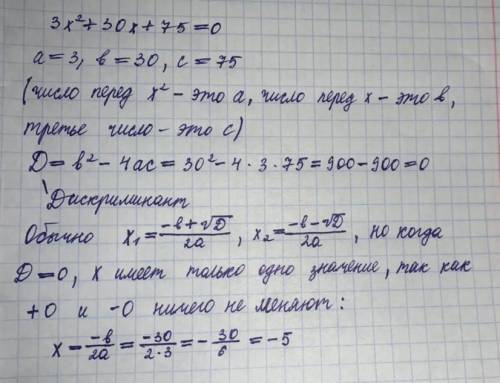 3x²+30x+75=0
a=3, b=30, c=75
(число перед x² – это a, число перед x – это b,
третье число – это c)
D= b²– 4ac= 30²– 4·3·75=900–900=0
\Дискриминант
Обычно x₁=(-b+√D)/2a, x₂=(-b-√D)/2a, но когда
D=0, x имеет только одно значение, так как
+0 и -0 ничего не меняют:
x – -b/2a = -30/2·3 = - 30/6 = -5